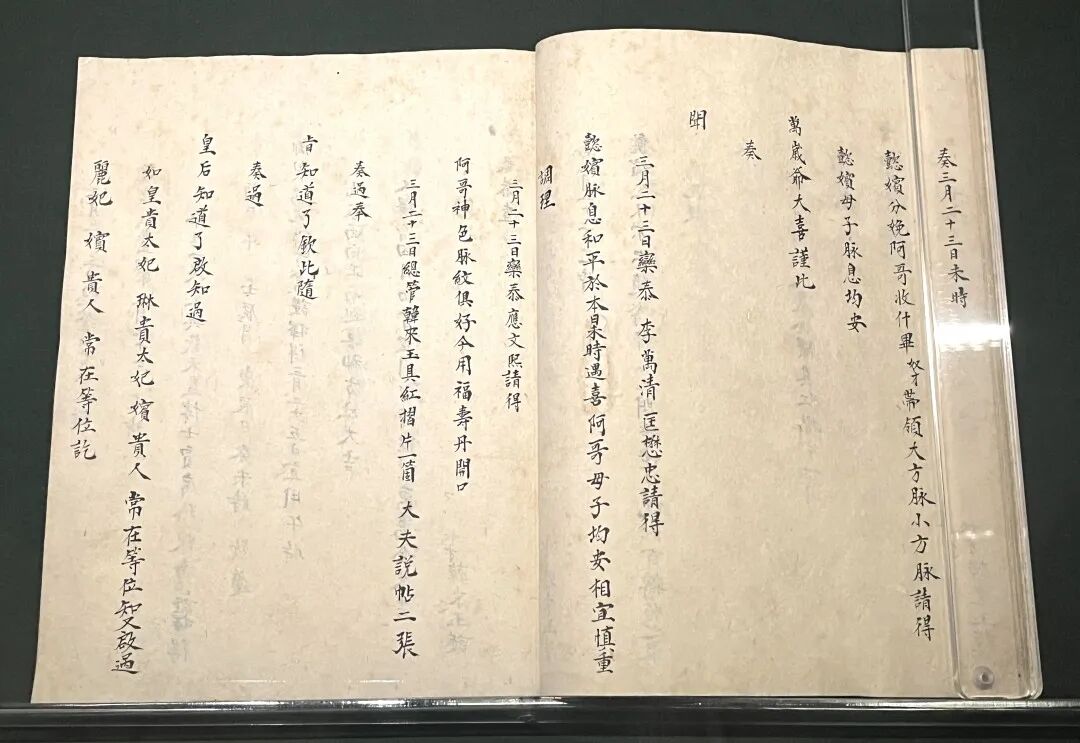 奏三月二十三日未時
懿嬪分娩阿哥收什畢奴才帶領大方脉小方脉請得
懿嬪母子脉息均安
萬歲爺大喜謹此
奏
聞
三月二十三日欒泰 李萬清 匡懋忠請得
懿嬪脉息和平於本日未時遇喜阿哥母子均安相宜慎重
調理
三月二十三日欒泰應文熙請得
阿哥神色脉紋俱好今用福壽丹開口
三月二十三日總管韓來玉具紅摺片一箇 大夫説帖二張
奏過奉
旨知道了欽此隨
奏過
皇后知道了啟知過
如皇貴太妃 琳貴太妃 嬪 貴人 常在等位知又啟過
麗妃 嬪 貴人 常在等位訖